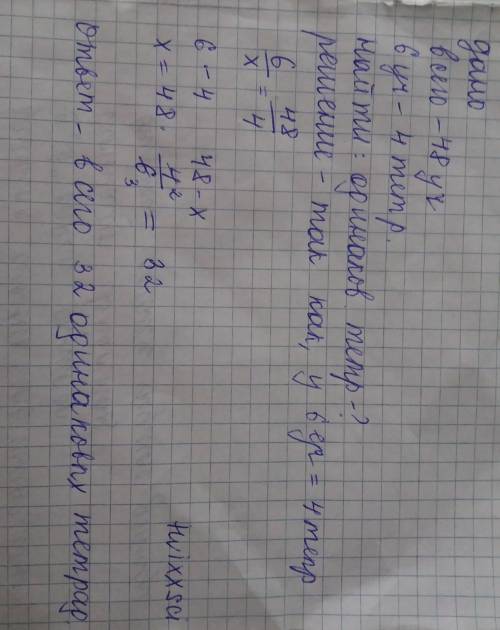 дано
всего - 48 уч
6 уч - 4 тетр.
найти: одинаков тетр-?
решение - так как, у 6 уч = 4 тетр
6/x = 48/4
6 - 4 48 - x
x = 48 · 4²/6₃ = 32
4wixxsci
Ответ - всего 32 одинаковых тетрад.